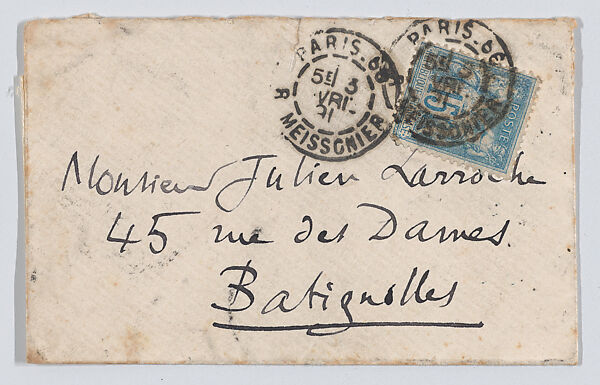 PARIS.66
5E/ 3
VRI.
91
R MEISSONIER
PARIS.66
5E/ 3
VRI
MEISSONIER
15
POSTES
Monsieur Julien Larroche
45 rue des Dames.
Batignolles